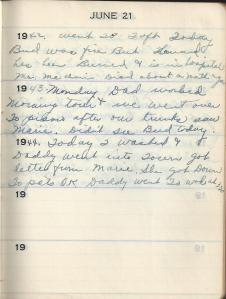 JUNE 21
1942. went to Taft Today
Bud was fire Bud Howard
has been Burned & is in hospital
Mr. Mc died about a month ago
1943. Monday Dad worked
Morning tour & we went over
To after our trunks saw
Marie. Didn't see Bud Today.
1944. Today I washed &
Daddy went into Town got
letter from Marie. She got Down
To OK Daddy went To work
19
19